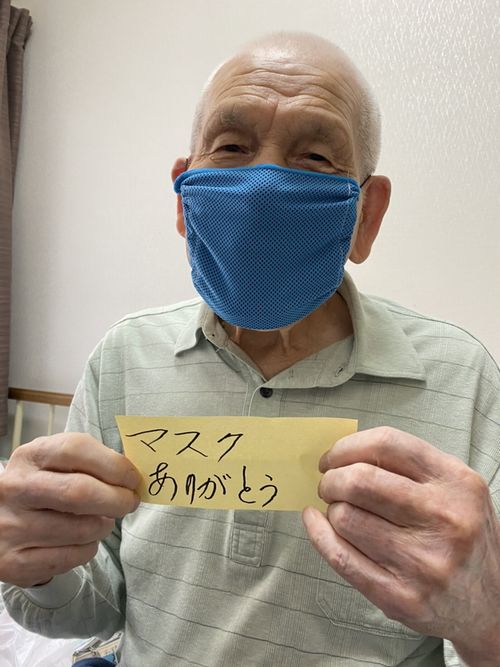 マスク
ありがとう